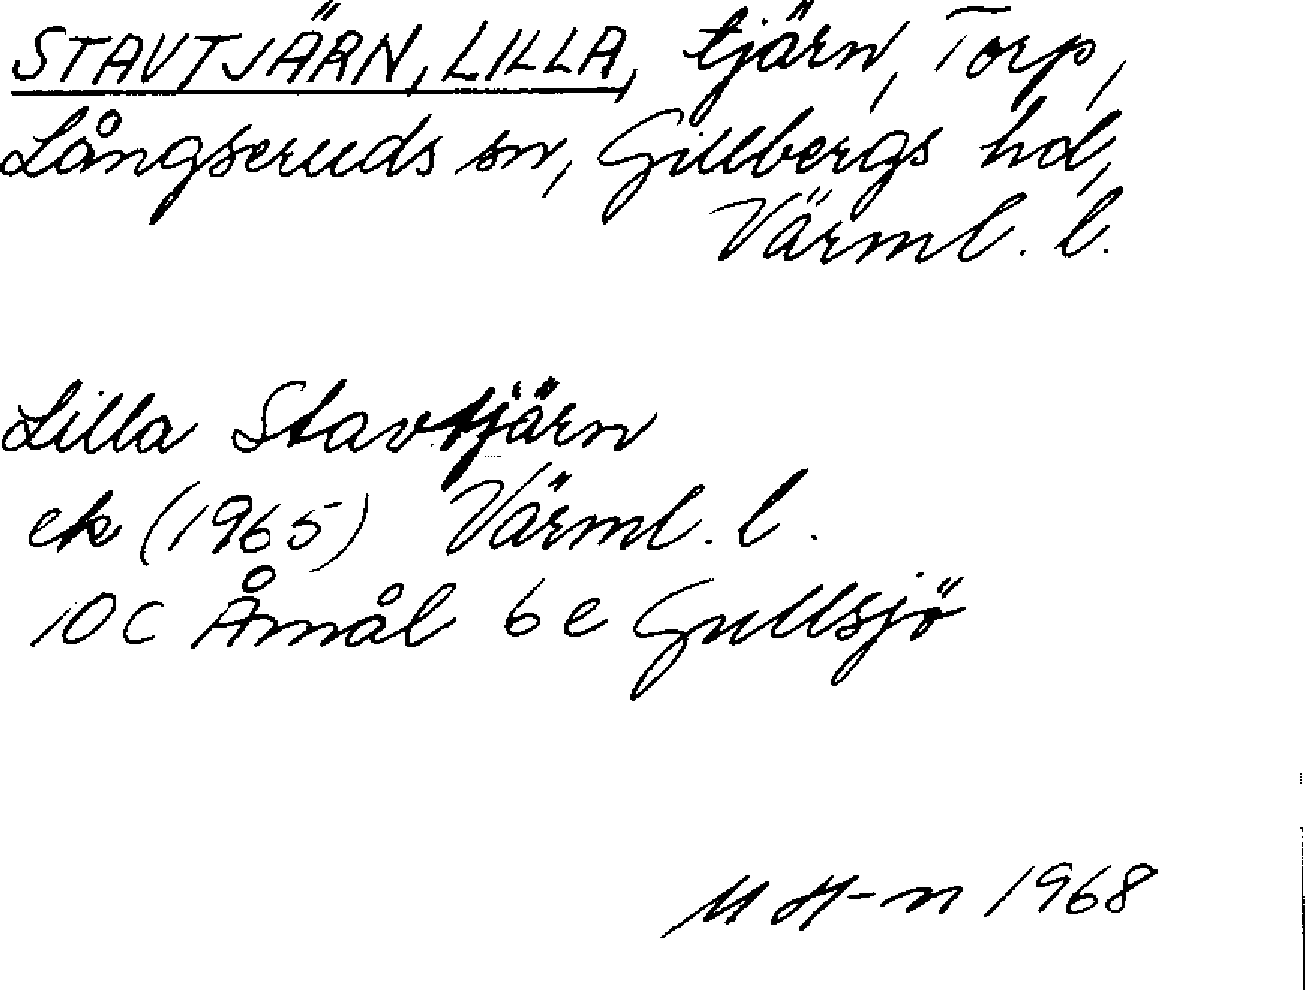 STAVTJÄRN, LILLA, tjärn, Torp,
Långseruds sn, Gillbergs hd,
Värml. l.
Lilla Stavtjärn
ek (1965) Värml. l.
10 C Åmål 6 e Gullsjö
M H-n 1968